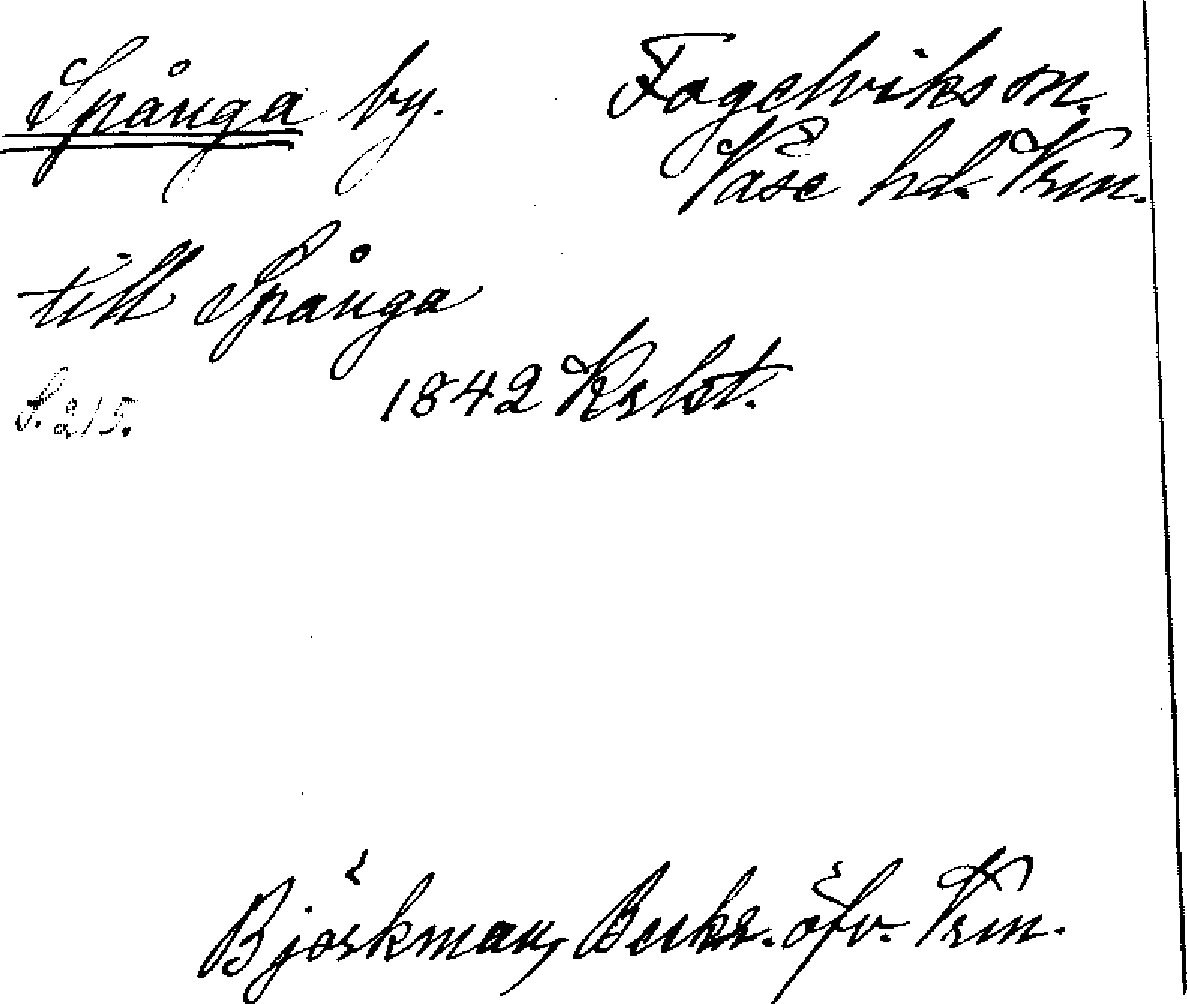 Spånga by. Fogelvik son.
Väse hd. Vrm.
till Spånga
1842
S. 215.
Björkman, Beskr. öfv. Vrm.